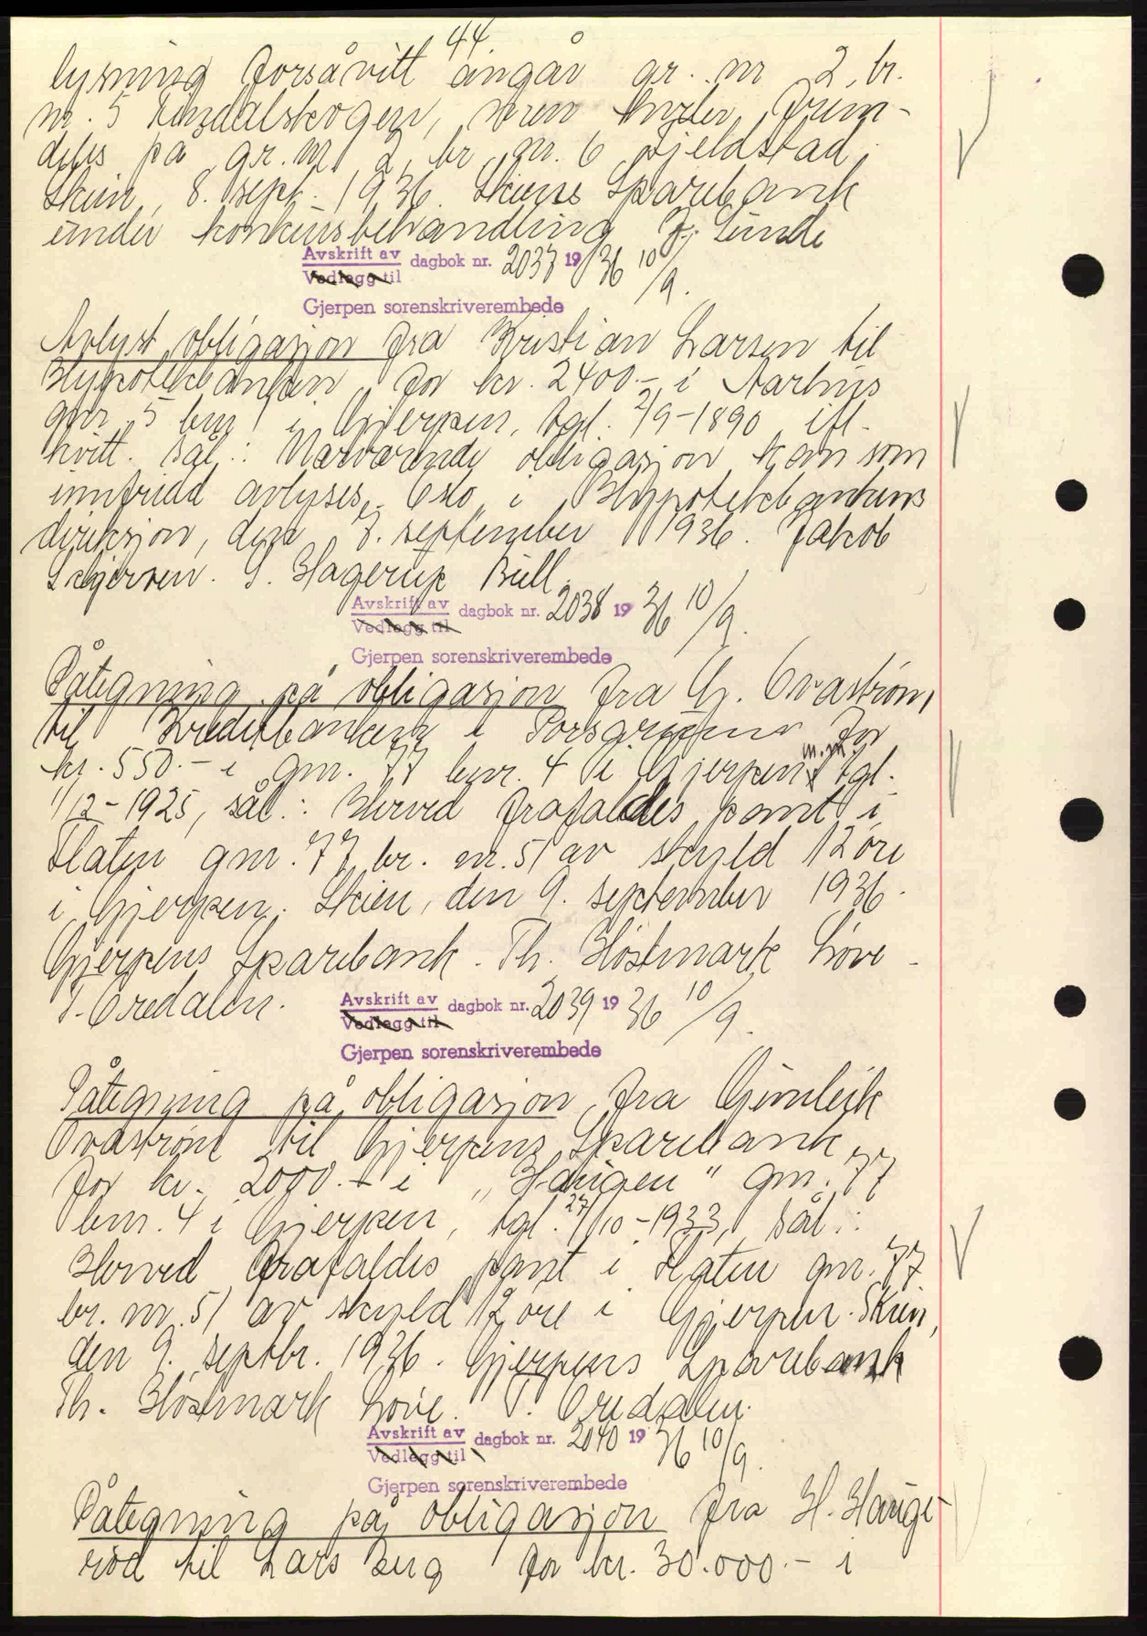 44
lysning forsåvitt angår gr. nr 2, br.
nr. 5 skogen, som
deles på gr. nr 2, br. nr. 6 Fjeldstad,
Skien, 8. sept. 1936. Skiens Sparebank
under konkursbehandling J. Lunde
Avskrift av dagbok nr. 2037 1936 10/9.
Vedlegg til
Gjerpen sorenskriverembede
Avlyst obligasjon fra Kristian Larsen til
Hypotekbanken for kr. 2400.- i Aarhus
gnr. 5 bnr 1 i Gjerpen, tgl. 2/9-1890 ifl.
kvitt. sål.: Nærværende obligasjon kan som
innfridd avlyses. Oslo i Hypotekbankens
direksjon, den 8. september 1936. Jakob
S. Hagerup Bull.
Avskrift av dagbok nr. 2038 1936 10/9.
Vedlegg til
Gjerpen sorenskriverembede
Påtegning på obligasjon fra G. Ovastrøm,
til Kreditbanken i Porsgrunn for
kr. 550.- i gnr. 77 bnr. 4 i Gjerpen m.m. tgl.
1/12-1925, sål.: Herved frafaldes pant i
Flaten gnr. 77 br. nr. 51 av skyld 12 øre
i Gjerpen. Skien, den 9. september 1936.
Gjerpens Sparebank. Th. Høstmark Løve -
T. Oredalen.
Avskrift av dagbok nr. 2039 1936 10/9.
Vedlegg til
Gjerpen sorenskriverembede
Påtegning på obligasjon fra Gunleik
Ovastrøm til Gjerpens Sparebank
for kr. 2000.- i "Haugen" gnr. 77
bnr. 4 i Gjerpen, tgl. 27/10-1933, sål.:
Herved frafaldes pant i Flaten gnr. 77
br. nr. 51 av skyld 12 øre i Gjerpen. Skien,
den 9. septbr. 1936. Gjerpens Sparebank
Th. Høstmark Løve. T. Oredalen.
Avskrift av dagbok nr. 2040 1936 10/9.
Vedlegg til
Gjerpen sorenskriverembede
Påtegning på obligasjon fra H. Hauge-
rød til Lars Berg for kr. 30.000.- i